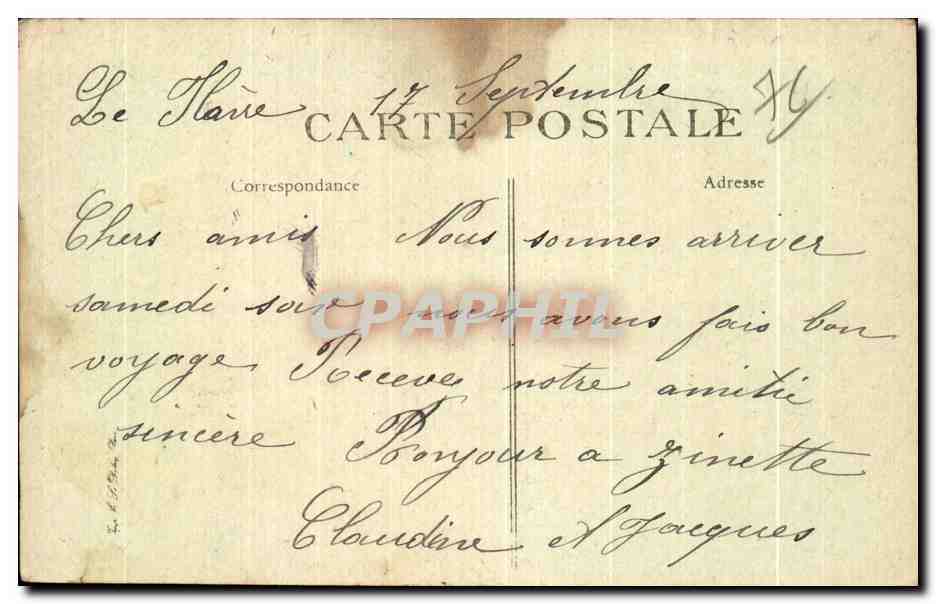 Le Havre 17 Septembre 76
CARTE POSTALE
Correspondance Adresse
Chers amis Nous sommes arriver
samedi soir nous avons fais bon
voyage Receves notre amitié
sincère Bonjour a Zinette
Claudine et Jacques
CPAPHIL